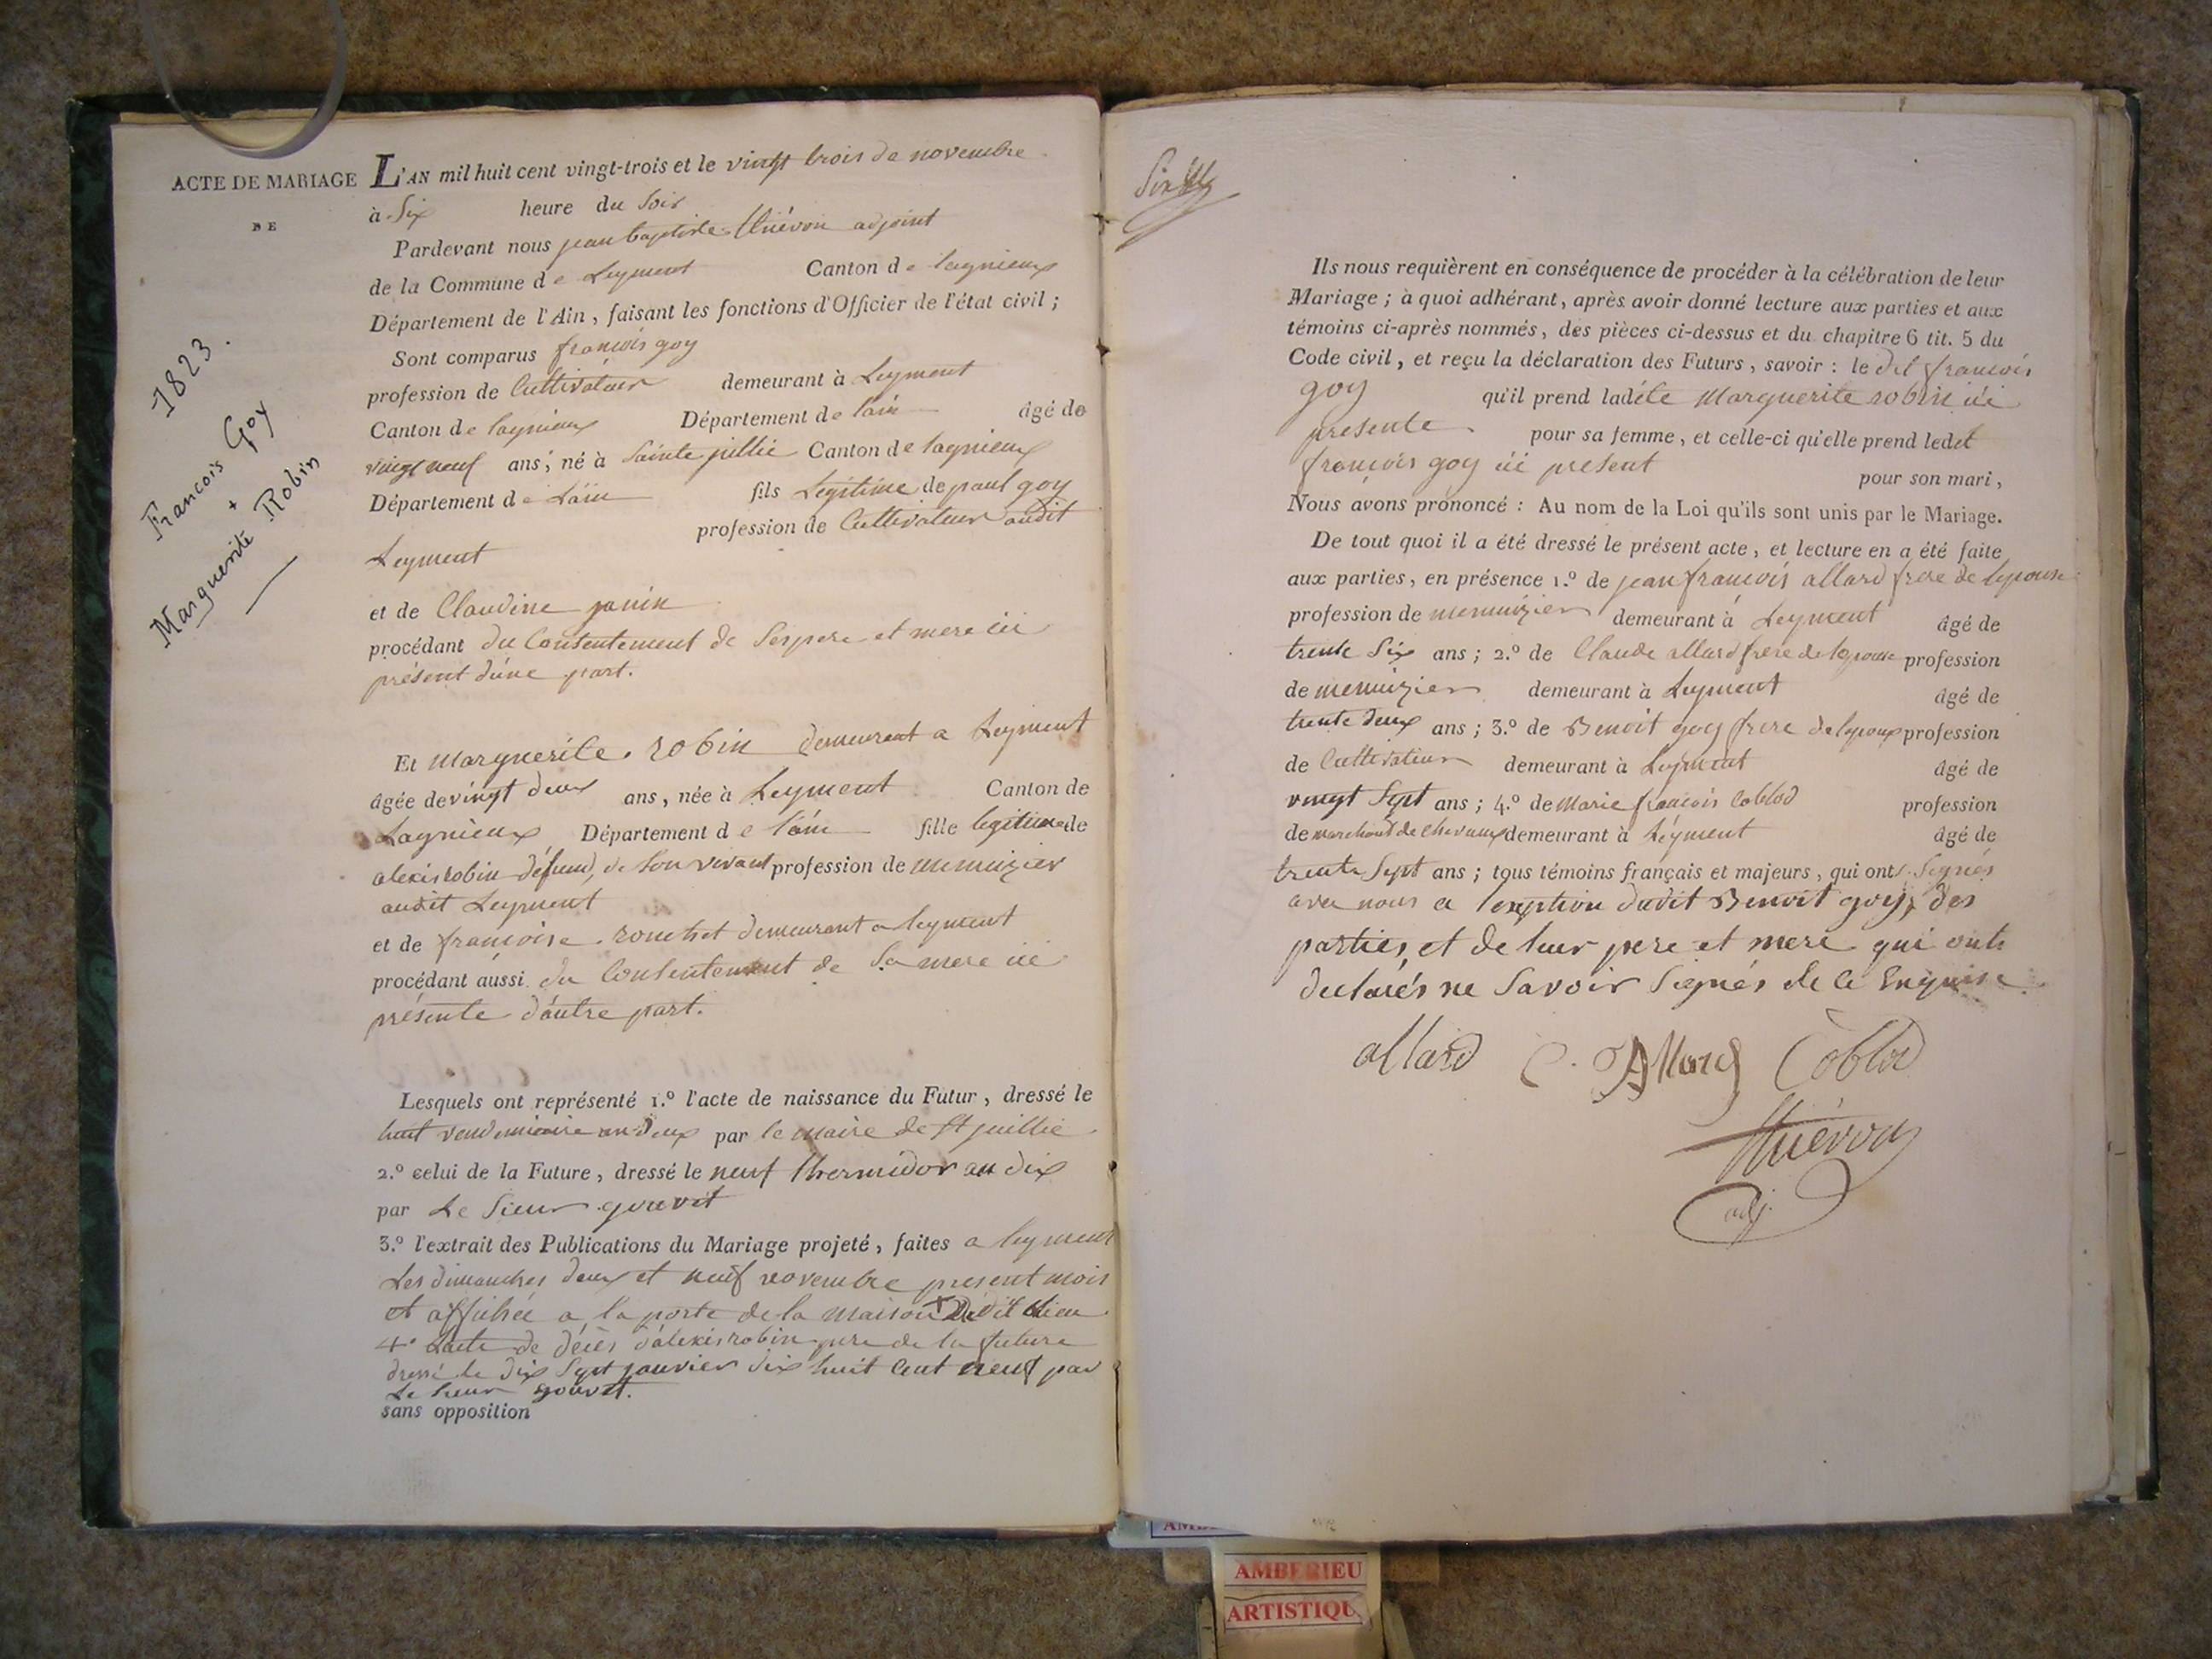 ACTE DE MARIAGE
DE
1823.
Francois Goy
+
Marguerite Robin
L'AN mil huit cent vingt-trois et le vingt trois de novembre
à Six heure du Soir
Pardevant nous jean baptiste Thiévon adjoint
de la Commune de Leyment Canton de lagnieux
Département de l'Ain, faisant les fonctions d'Officier de l'état civil ;
Sont comparus françois goy
profession de Cultivateur demeurant à Leyment
Canton de lagnieux Département de l'ain âgé de
vingt neuf ans, né à Sainte jullie Canton de lagnieux
Département de L'ain fils Legitime de paul goy
profession de Cultivateur audit
Leyment
et de Claudine janin
procédant du Consentement de Ses pere et mere ici
présent d'une part.
Et Marguerite robin demeurant a Leyment
âgée de vingt deux ans, née à Leyment Canton de
Lagnieux Département de l'ain fille legitime de
alexis robin défund, de Son vivant profession de menuizier
audit Leyment
et de françoise demeurant a leyment
procédant aussi du Consentement de Sa mere ici
présente d'autre part.
Lesquels ont représenté 1.º l'acte de naissance du Futur, dressé le
huit vendemiaire an deux par le maire de St juillie
2.º celui de la Future, dressé le neuf thermidor an dix
par Le Sieur gouvet
3.º l'extrait des Publications du Mariage projeté, faites a leyment
Les dimanches deux et neuf novembre present mois
et affichée a la porte de la maison dudit lieu
4º Lacte de décès d'alexis robin pere de la future
dressé le dix Sept janvier dix huit Cent neuf par
Le Sieur gouvet.
sans opposition
Ils nous requièrent en conséquence de procéder à la célébration de leur
Mariage ; à quoi adhérant, après avoir donné lecture aux parties et aux
témoins ci-après nommés, des pièces ci-dessus et du chapitre 6 tit. 5 du
Code civil, et reçu la déclaration des Futurs, savoir : le dit françois
goy qu'il prend ladite Marguerite robin ici
presente pour sa femme, et celle-ci qu'elle prend ledit
françois goy ici present pour son mari,
Nous avons prononcé : Au nom de la Loi qu'ils sont unis par le Mariage.
De tout quoi il a été dressé le présent acte, et lecture en a été faite
aux parties, en présence 1.º de jean françois allard frere de lepouse
profession de menuizier demeurant à Leyment âgé de
trente Six ans ; 2.º de Claude allard frere de lepouse profession
de menuizier demeurant à Leyment âgé de
trente deux ans ; 3.º de Benoit goy frere de lepoux profession
de Cultivateur demeurant à Leyment âgé de
vingt Sept ans ; 4.º de Marie françois Coblod profession
de marchand de chevaux demeurant à Léyment âgé de
trente Sept ans ; tous témoins français et majeurs, qui ont Signés
avec nous a lexeption dudit Benoit goy, des
parties, et de leur pere et mere qui ont
declarés ne Savoir Signés de ce Enquise
allard C. Allard Coblod
Thiévon
adj.
AMBERIEU
ARTISTIQU